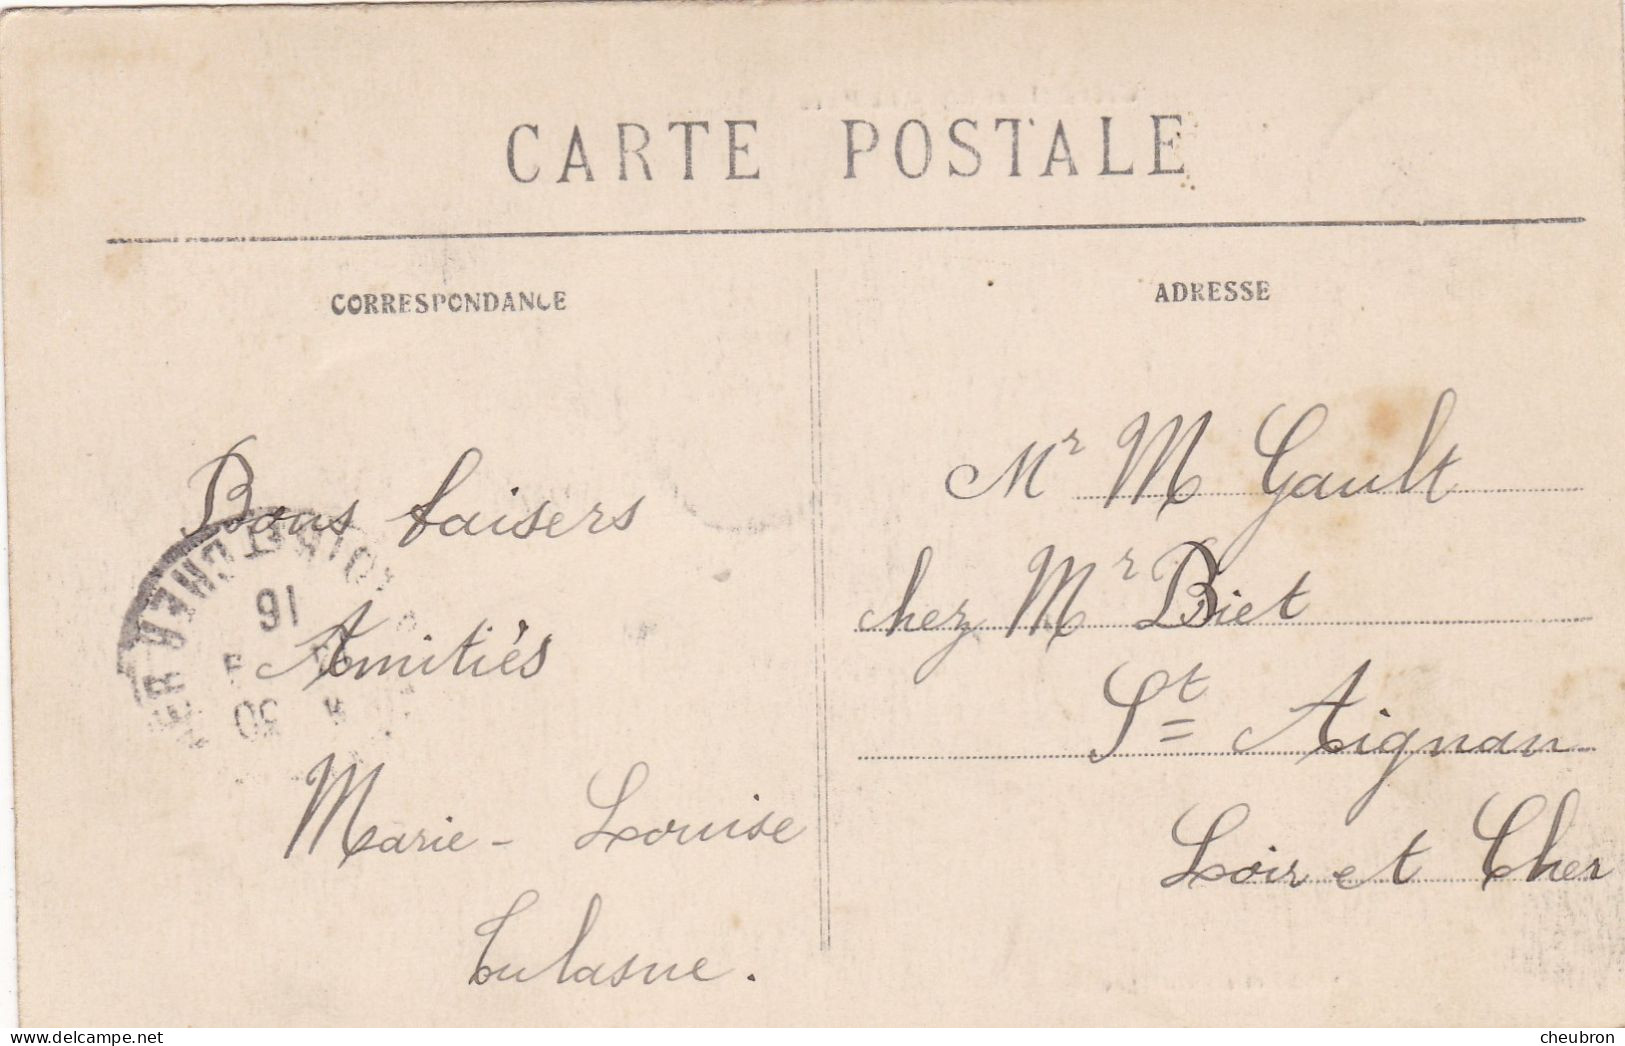 CARTE POSTALE
CORRESPONDANCE
ADRESSE
Bons baisers
Amitiés
Marie-Louise
Tulasne.
Mr M Gault
chez Mr Biet
St Aignan
Loir et Cher
LOIR ET CHER
16
30
cheubron
© delcampe.net